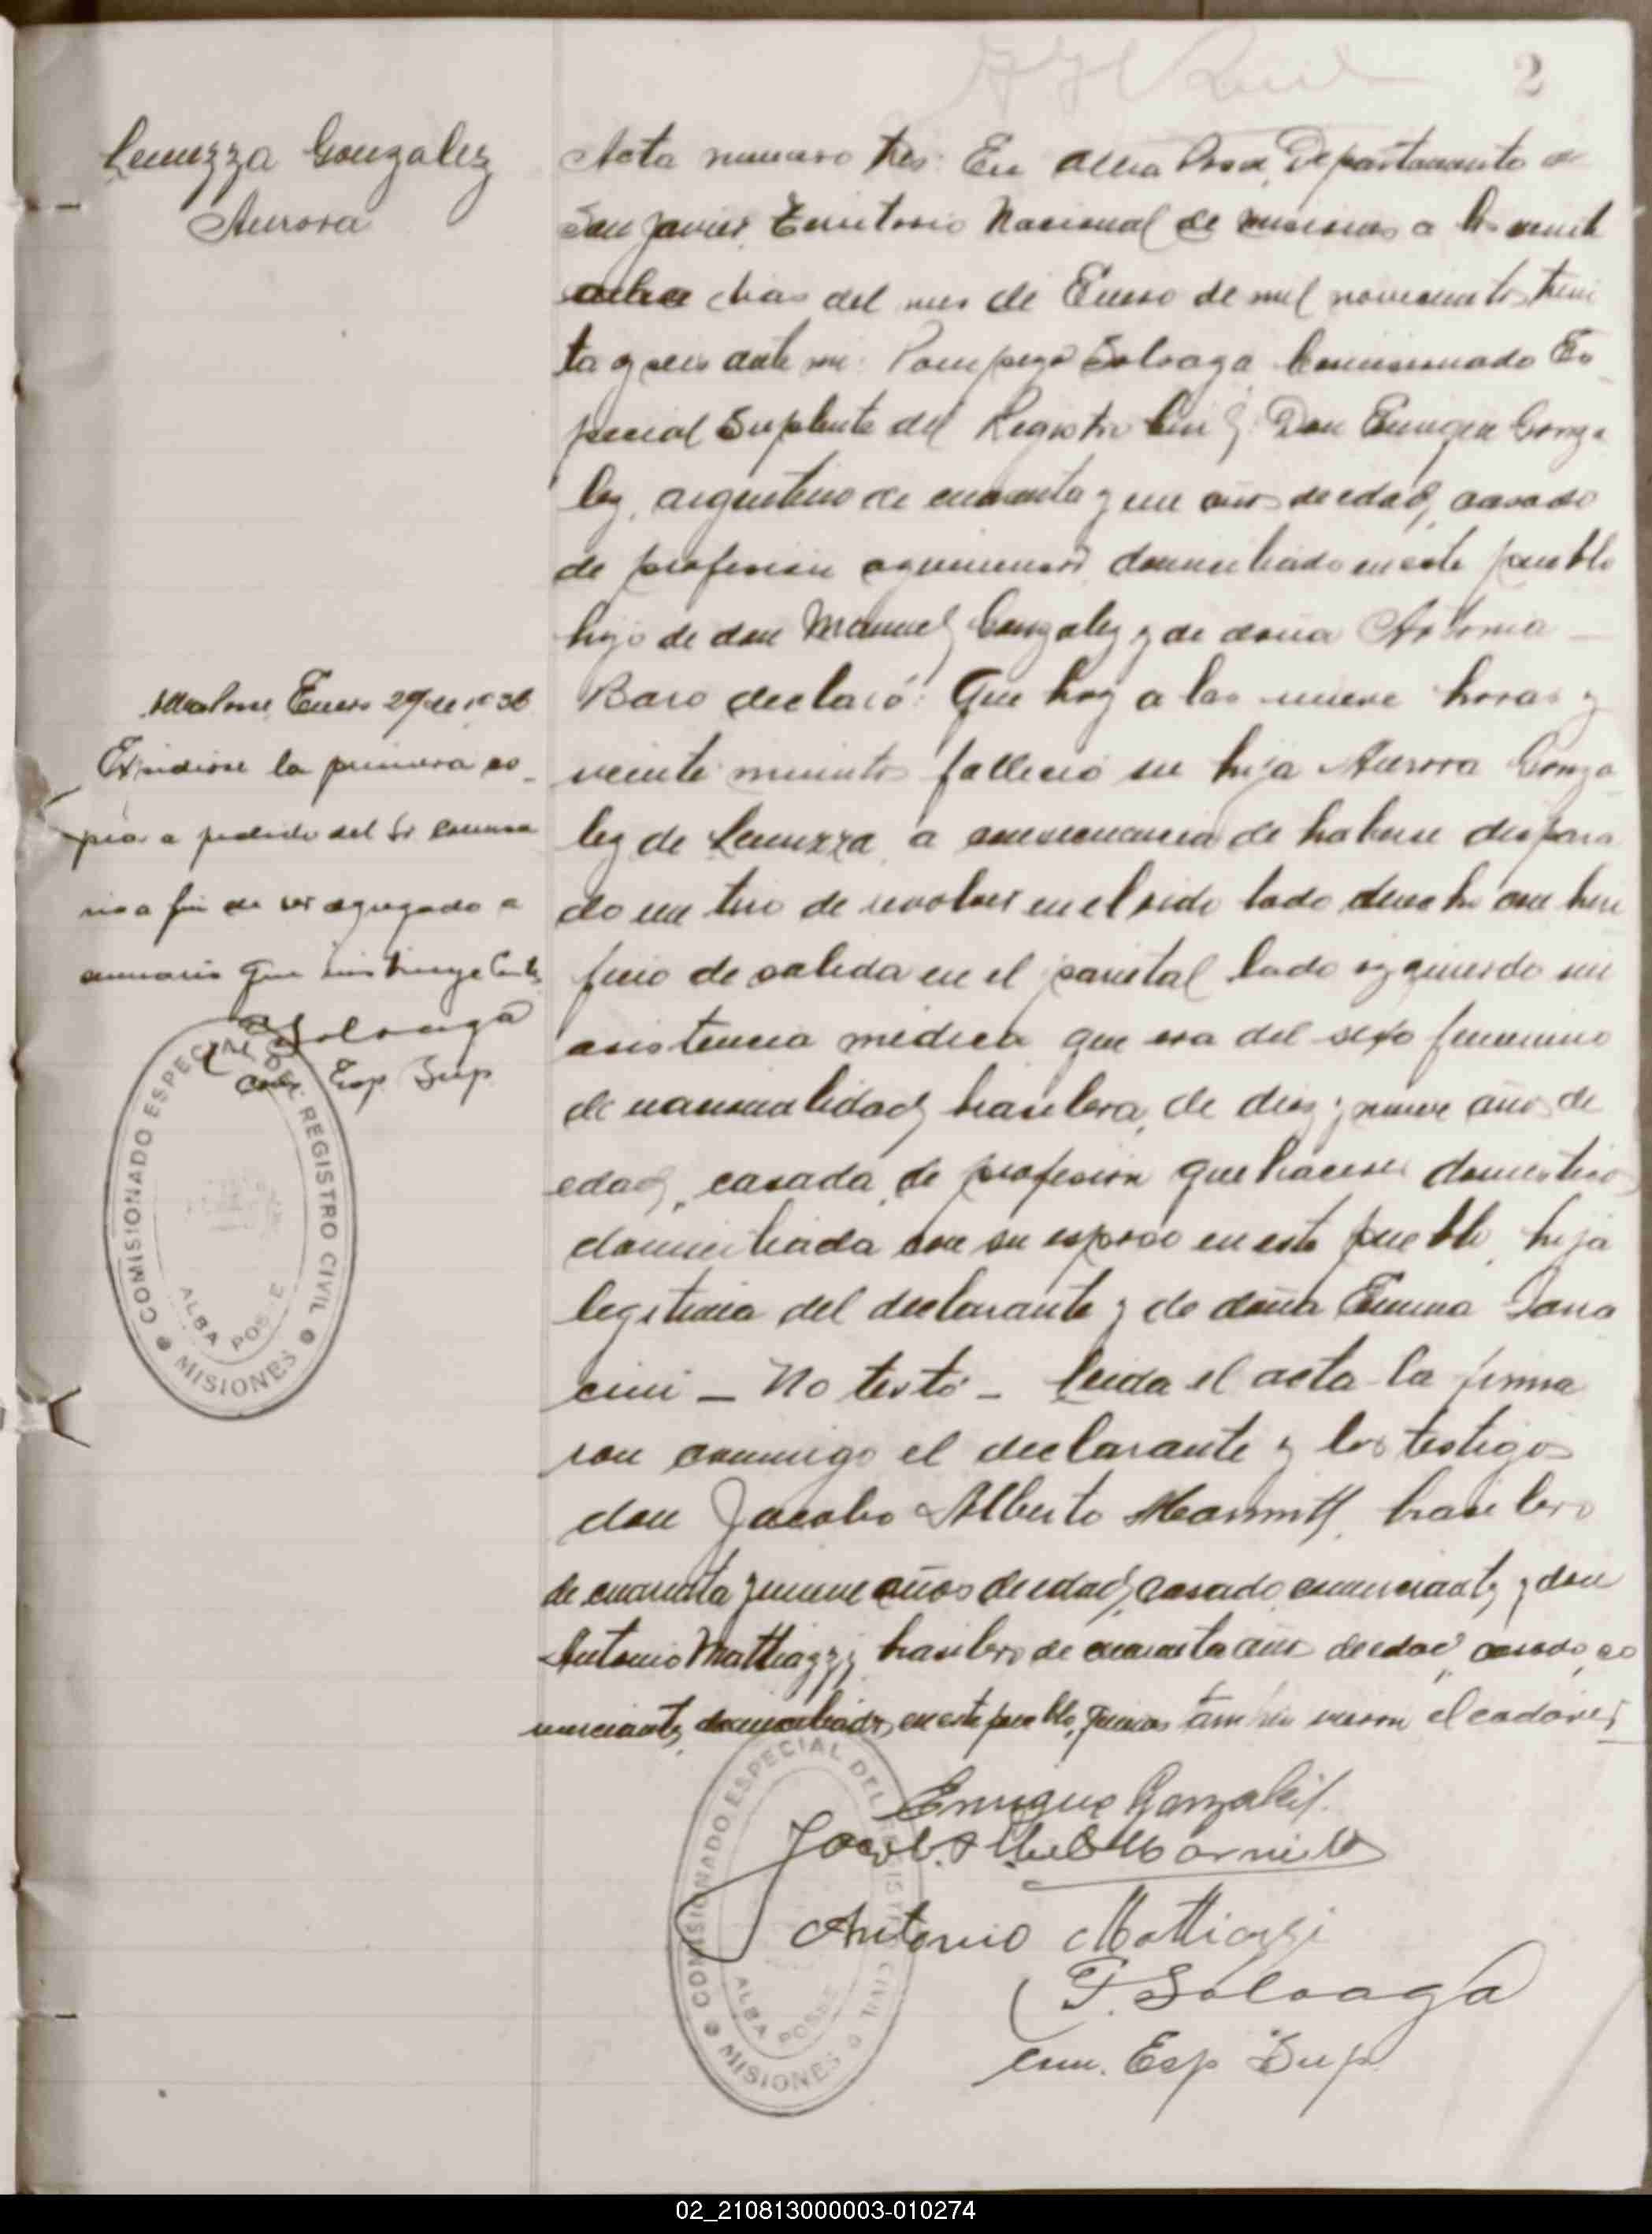 2
Lenuzza Gonzalez
Aurora
Acta numero tres: En Alba Posse, Departamento de
San Javier, Territorio Nacional de Misiones a los veinti
ocho dias del mes de Enero de mil novecientos trein
ta y seis ante mi: Pompeyo Soloaga Comisionado Es
pecial Suplente del Registro Civil: Don Enrique Gonza
lez, argentino de cuarenta y un años de edad, casado
de profesion agrimensor domiciliado en este pueblo
hijo de don Manuel Gonzalez y de doña Antonia —
Baro declaró: Que hoy a las nueve horas y
veinte minutos fallecio su hija Aurora Gonza
lez de Lenuzza, a consecuencia de haberse dispara
do un tiro de revolver en el oido lado derecho con hori
ficio de salida en el parietal lado izquierdo sin
asistencia medica que era del sexo femenino
de nacionalidad brasilera, de diez y nueve años de
edad, casada, de profesion quehaceres domesticos
domiciliada con su esposo en este pueblo, hija
legitima del declarante y de doña Emma
cini — No testó — Leida el acta la firma
ron conmigo el declarante y los testigos
don Jacobo Alberto brasilero
de cuarenta y nueve años de edad, casado, comerciante, y don
Antonio Mattiazzi, brasilero de cuarenta años de edad, casado, co
merciante, domiciliados en este pueblo, quienes tambien vieron el cadaver
Enero 29 de 1936
Expidiose la primera co-
pia a pedido del Sr Comisa
rio a fin de ser agregado a
sumario que instruye
P. Soloaga
Com. Esp. Sup.
COMISIONADO ESPECIAL DEL REGISTRO CIVIL
ALBA POSSE
MISIONES
Enrique Gonzalez
Antonio Mattiazzi
P. Soloaga
Com. Esp. Sup.
COMISIONADO ESPECIAL DEL REGISTRO CIVIL
ALBA POSSE
MISIONES
02_210813000003-010274